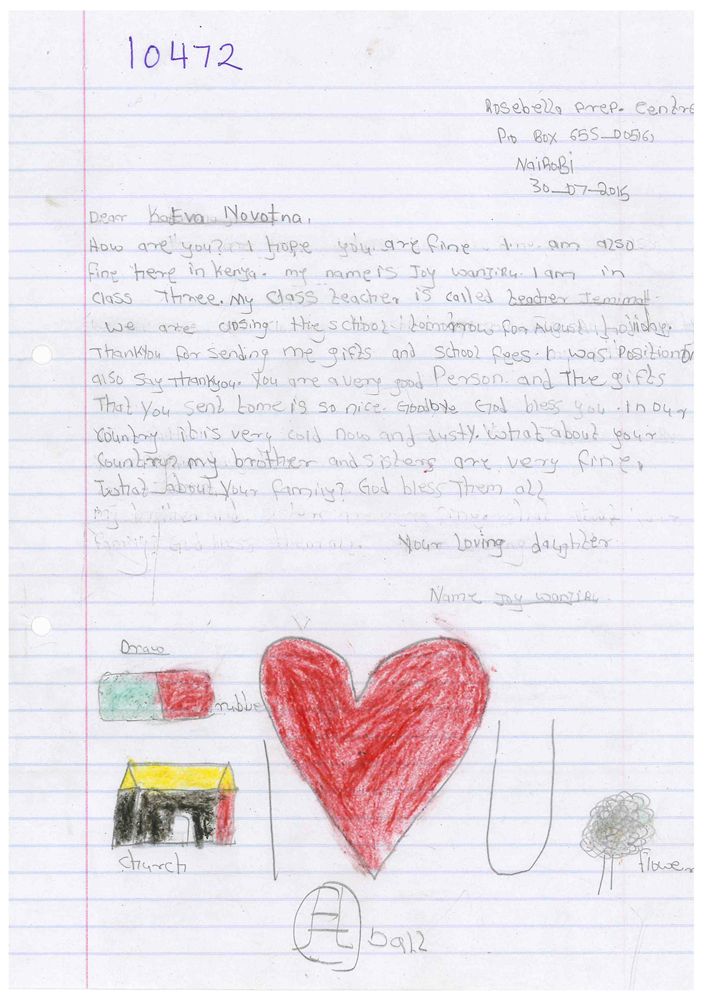 10472
Rosebella Prep. Centre
P.O Box 655_00516
NaiRobi
30_07_2015
Dear Eva Novotna.
How are you? I hope you are fine. am also
fine here in Kenya. my name is Joy wanjiru. I am in
class Three. My class teacher is called teacher Jemimah.
we are closing the school tomorrow for August
Thankyou for sending me gifts and school fees. was Position
also say Thankyou. You are a very good Person. and The gifts
That you sent tome is so nice. Goodbye God bless you. In our
country it is very cold now and dusty. What about your
country? my brother and sisters are very fine.
What about your family? God bless Them all
Your Loving daughter
Name Joy wanjiru
Draw
rubber
I U
church
flower
ball